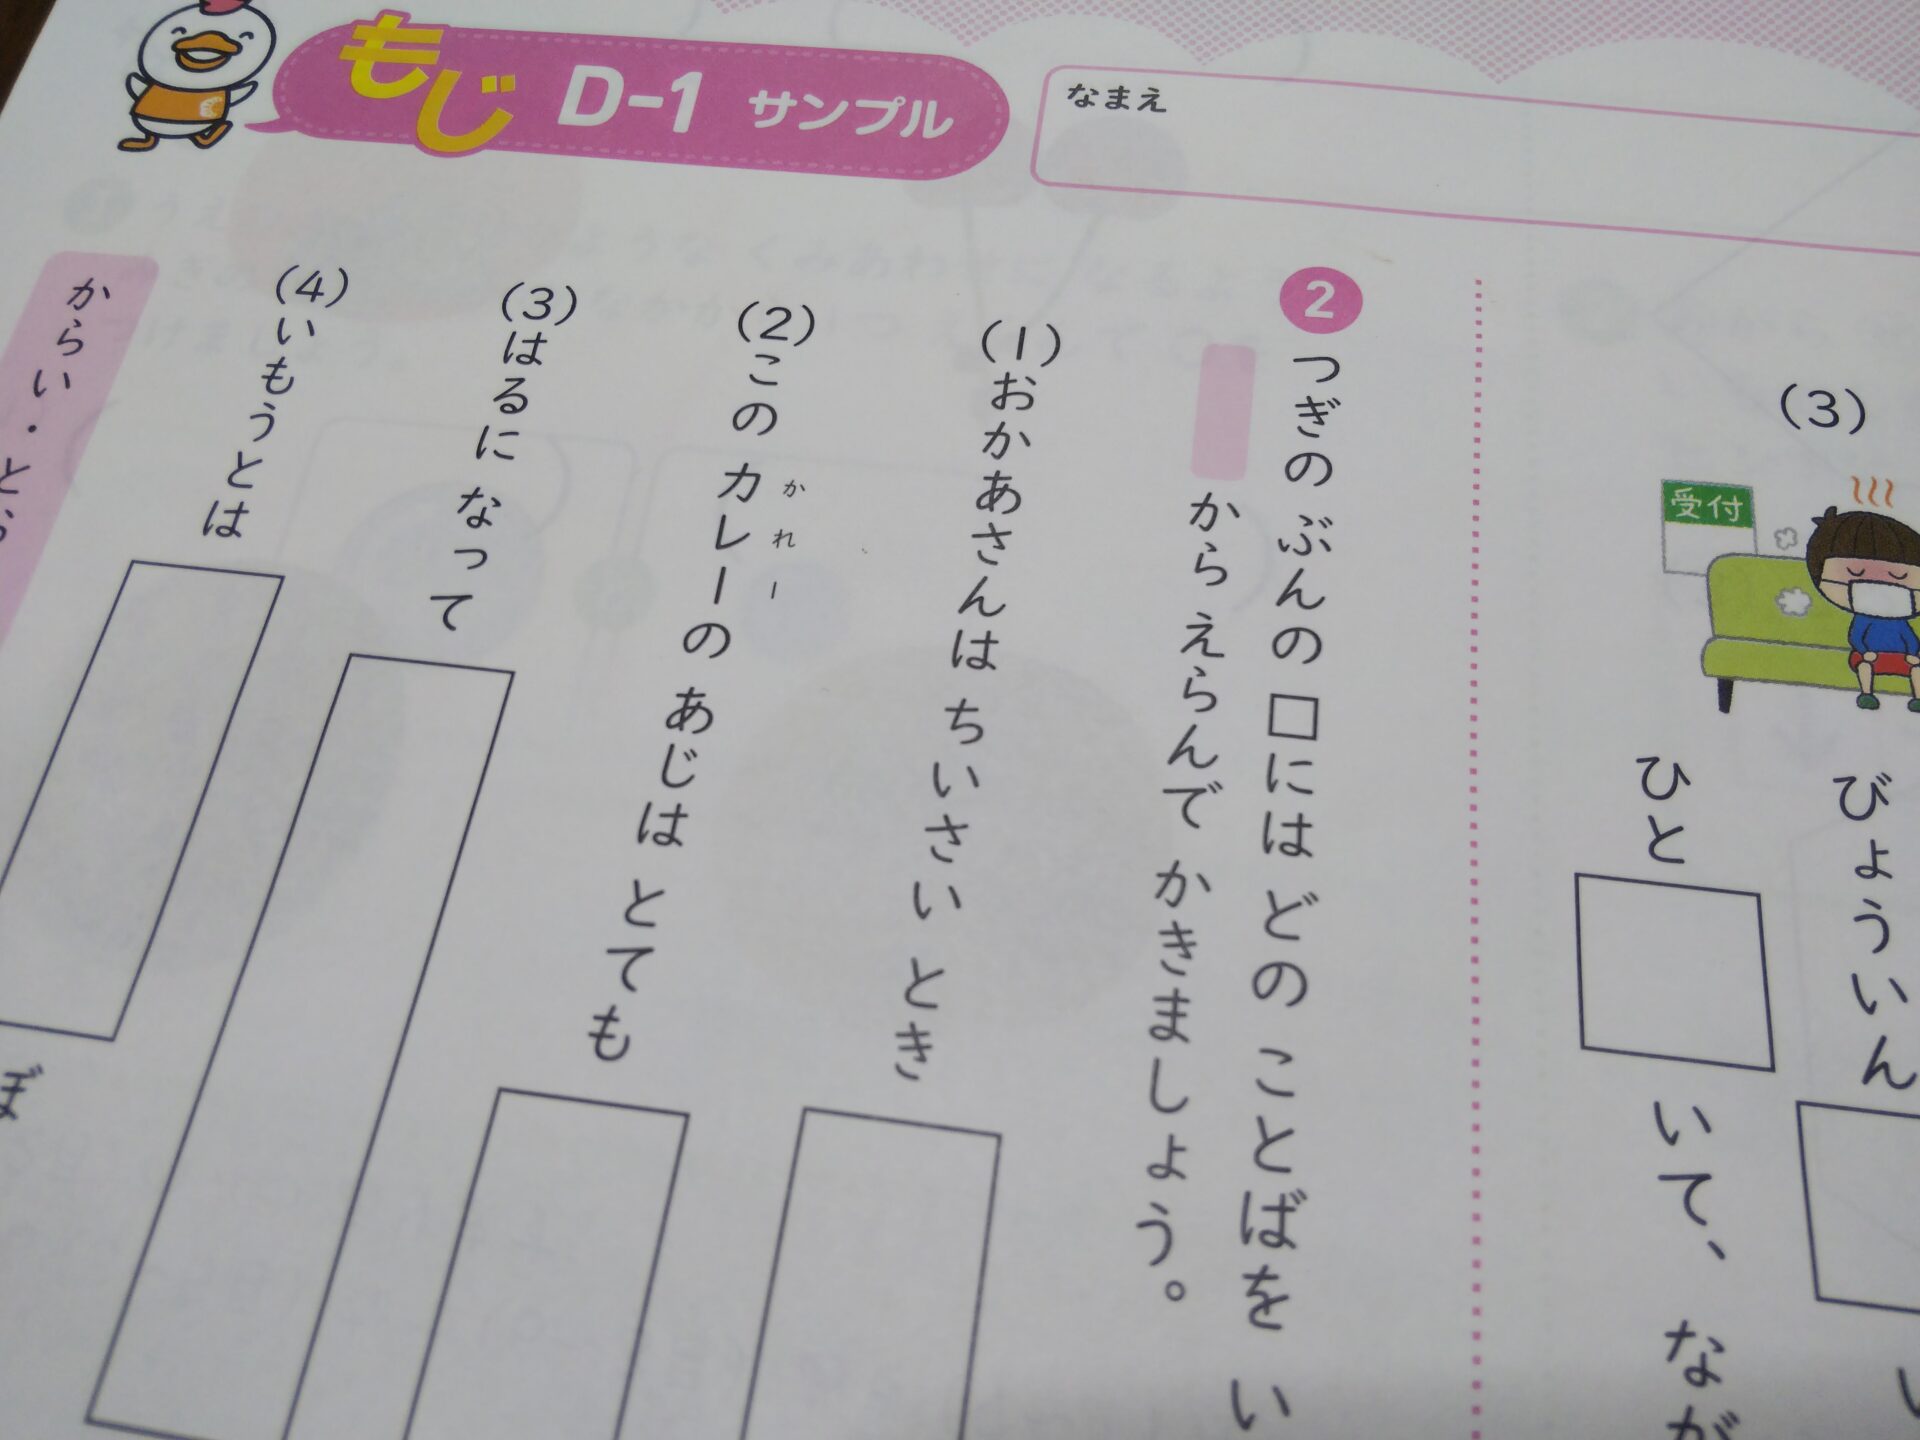 もじ D-1 サンプル
なまえ
(3)
受付
びょういん
ひと□いて、なが
2 つぎの ぶんの □には どの ことばを い
から えらんで かきましょう。
(1) おかあさんは ちいさい とき
(2) この カレーの あじは とても
かれー
(3) はるに なって
(4) いもうとは
からい・とら